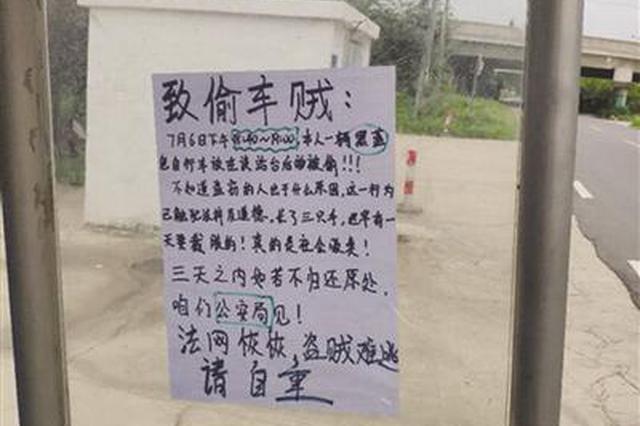 致偷车贼:
7月6日下午 8:40~19:00,本人一辆黑蓝
色自行车放在该站台后面被偷!!!
不知道盗窃的人出于什么原因,这一行为
已触犯法律及道德。长了三只手,迟早有一
天要栽跟的!真的是社会败类!
三天之内你若不归还原处,
咱们公安局见!
法网恢恢,盗贼难逃
请自重